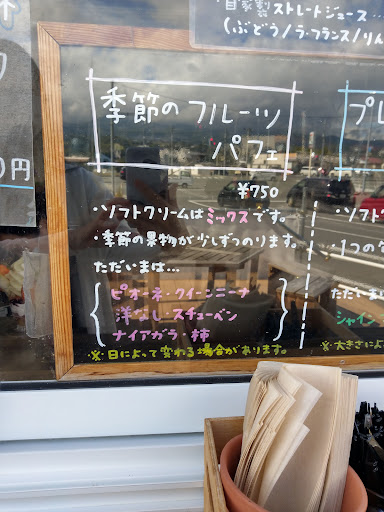 自家製ストレートジュース…
(ぶどう/ラ・フランス/りん
0円
季節のフルーツ
パフェ
¥750
・ソフトクリームはミックスです。
・季節の果物が少しずつのります。
ただいまは…
ピオーネ・クイーンニーナ
洋なし・スチューベン
ナイアガラ・柿
※日によって変わる場合があります。
プレ
・ソフト
・1つの
ただいま
シャイン
※大きさによ